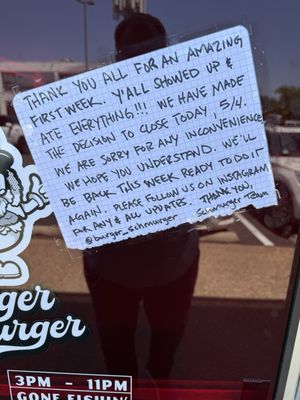 THANK YOU ALL FOR AN AMAZING
FIRST WEEK. Y'ALL SHOWED UP &
ATE EVERYTHING!!! WE HAVE MADE
THE DECISION TO CLOSE TODAY, 5/4.
WE ARE SORRY FOR ANY INCONVENIENCE.
WE HOPE YOU UNDERSTAND. WE'LL
BE BACK THIS WEEK READY TO DO IT
AGAIN. PLEASE FOLLOW US ON INSTAGRAM
FOR ANY & ALL UPDATES. THANK YOU,
@burger_schmurger
Schmurger Team
urger
urger
3PM - 11PM
GONE FISHIN'